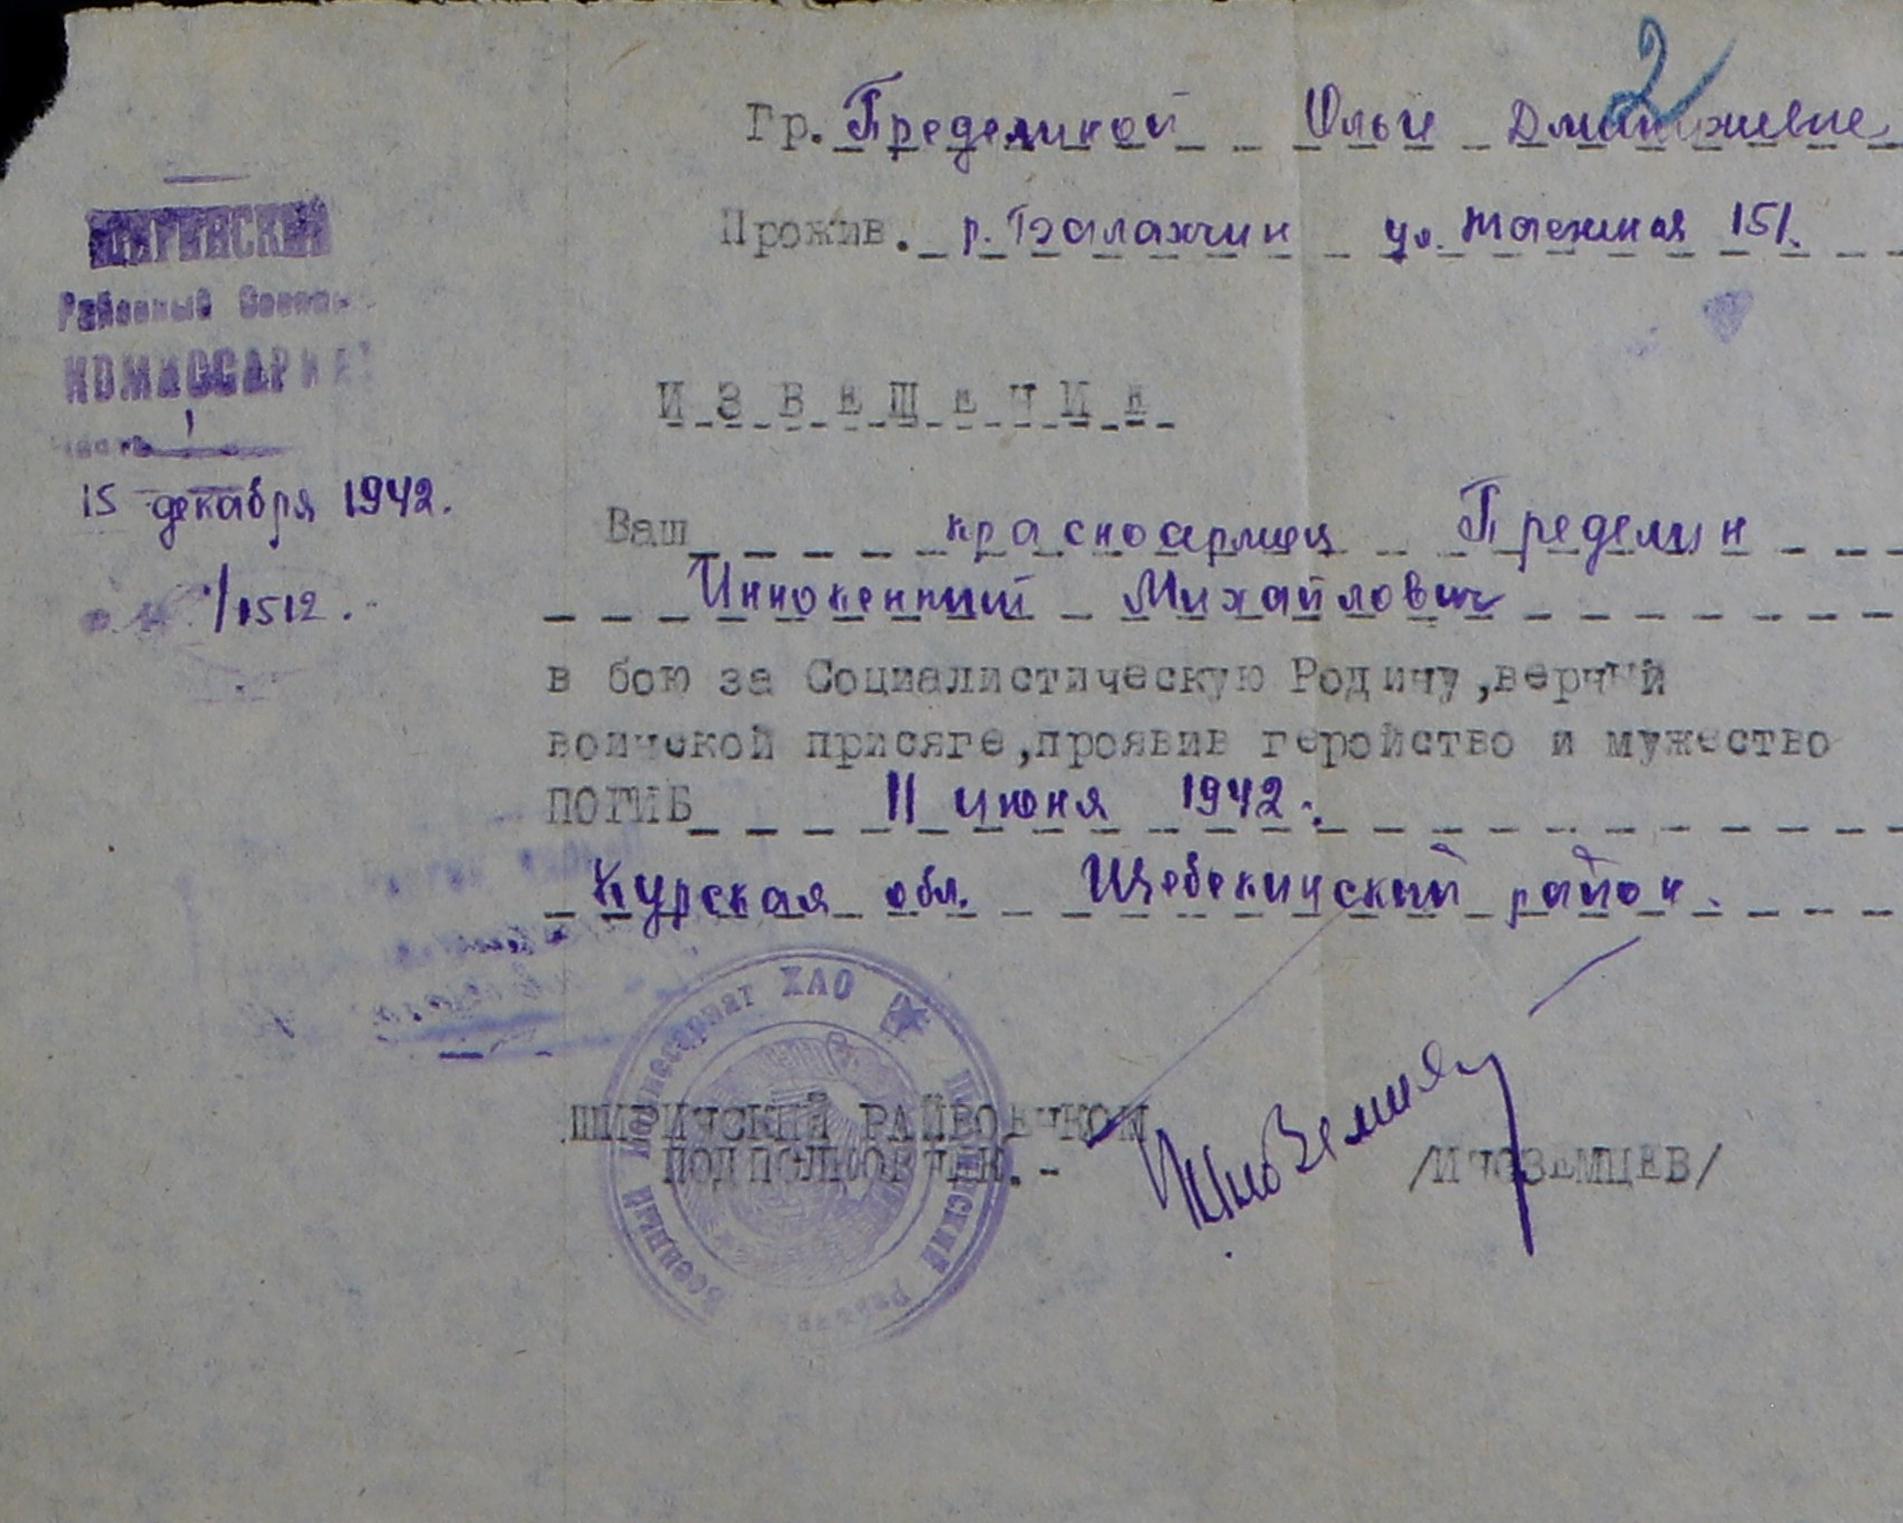 2
Гр. Пределиной Ольги Дмитриевне
Прожив. р. Балахчин ул. Таежная 151.
ШИРИНСКИЙ
Районный Военный
КОМИССАРИАТ
часть 1
15 декабря 1942.
№ 1/1512.
ИЗВЕЩЕНИЕ
Ваш красноармеец Пределин
Иннокентий Михайлович
в бою за Социалистическую Родину,верный
воинской присяге,проявив геройство и мужество
ПОГИБ 11 июня 1942.
Курская обл. Щебекинский район.
Военный Комиссариат ХАО Ширинский Районный
ШИРИНСКИЙ РАЙВОЕНКОМ
ПОДПОЛКОВНИК.- Иноземцев /ИНОЗЕМЦЕВ/